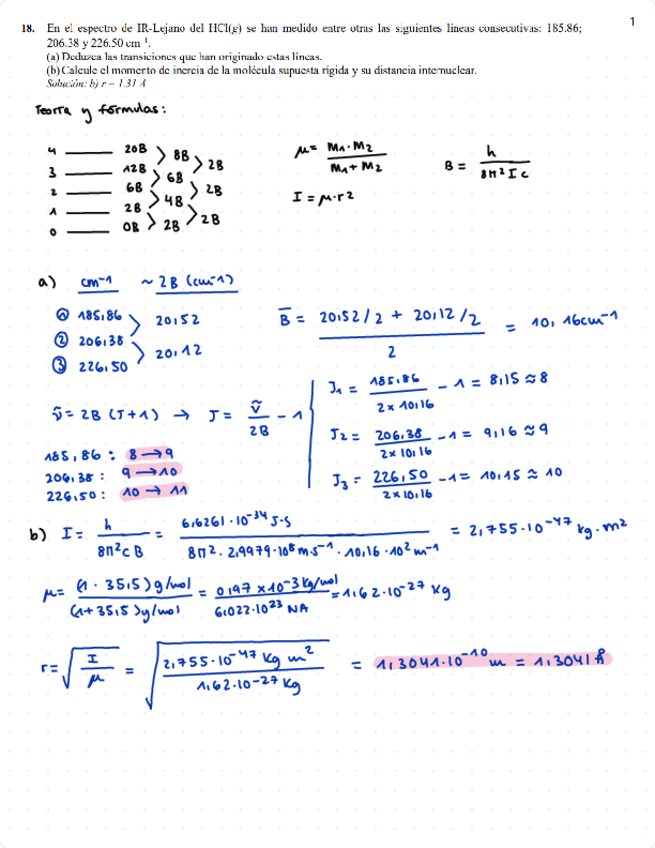 1
18. En el espectro de IR-Lejano del HCl(g) se han medido entre otras las siguientes lineas consecutivas: 185.86;
206.38 y 226.50 cm⁻¹.
(a) Deduzca las transiciones que han originado estas líneas.
(b) Calcule el momento de inercia de la molécula supuesta rígida y su distancia internuclear.
Solución: b) r = 1.31 Å
Teoría y fórmulas:
4 20B
3 12B
2 6B
1 2B
0 0B
8B
6B
4B
2B
2B
2B
2B
μ = M₁·M₂ / M₁+M₂
I = μ·r²
B = h / 8π² I c
a) cm⁻¹ ~ 2B (cm⁻¹)
① 185,86
② 206,38
③ 226,50
20,52
20,12
B̄ = (20,52/2 + 20,12/2) / 2 = 10,16 cm⁻¹
ṽ = 2B (J+1) → J = ṽ / 2B − 1
J₁ = 185,86 / 2×10,16 − 1 = 8,15 ≈ 8
J₂ = 206,38 / 2×10,16 − 1 = 9,16 ≈ 9
J₃ = 226,50 / 2×10,16 − 1 = 10,15 ≈ 10
185,86 : 8 → 9
206,38 : 9 → 10
226,50 : 10 → 11
b) I = h / 8π² c B = 6,6261·10⁻³⁴ J·S / 8π² · 2,9979·10⁸ m·s⁻¹ · 10,16·10² m⁻¹ = 2,755·10⁻⁴⁷ kg·m²
μ = (1·35,5) g/mol / (1+35,5) g/mol = 0,97 ×10⁻³ kg/mol / 6,022·10²³ NA = 1,62·10⁻²⁷ kg
r = √(I / μ) = √(2,755·10⁻⁴⁷ Kg m² / 1,62·10⁻²⁷ Kg) = 1,3041·10⁻¹⁰ m = 1,3041 Å